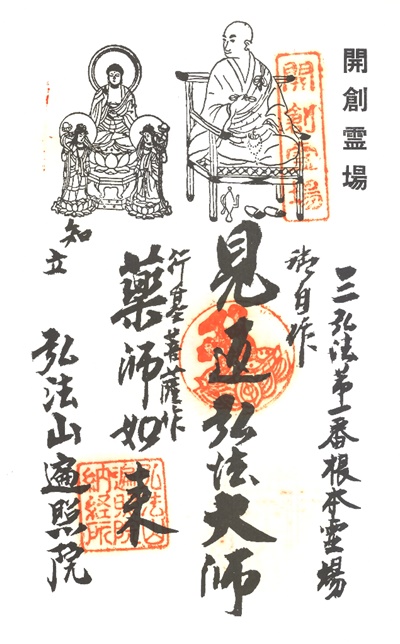 開創霊場
開創霊場
三弘法第一番根本霊場
御自作
見返弘法大師
行基菩薩作
藥師如来
知立
弘法山遍照院
弘法山
遍照院
納経所